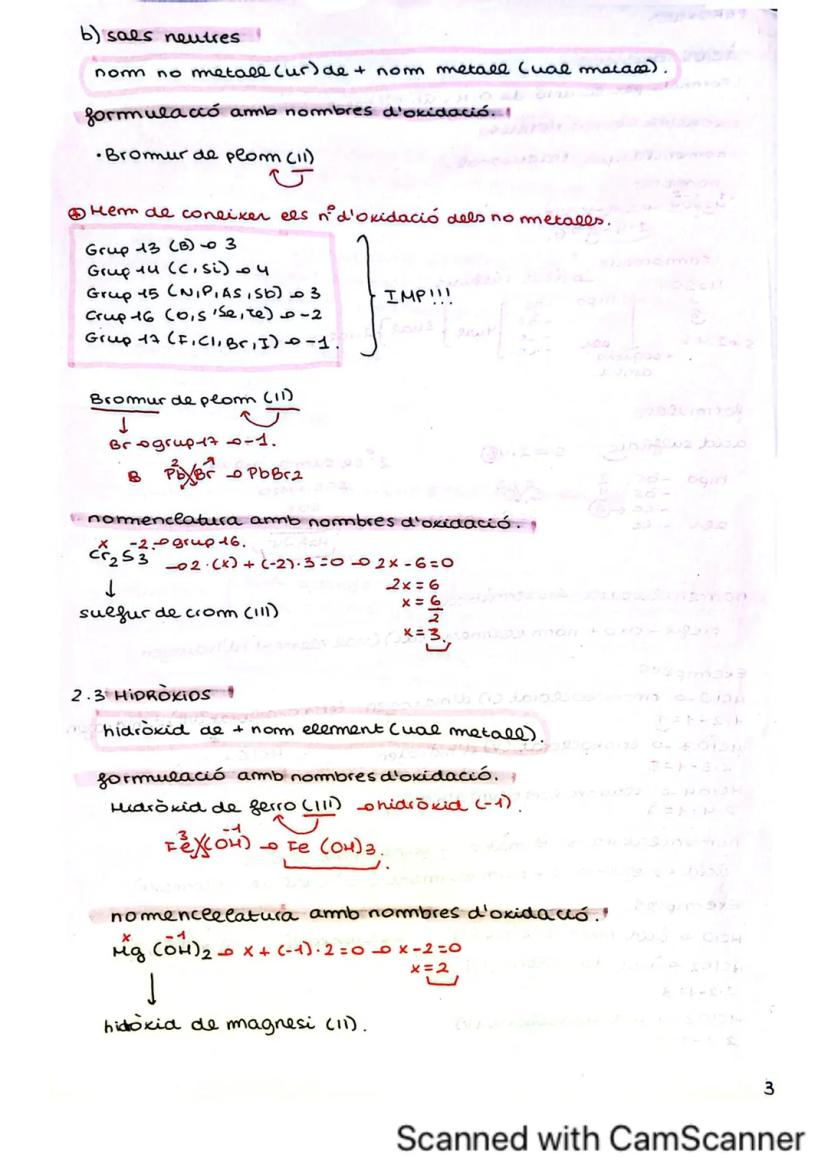 b) sals neutres
nom no metall (ur) de + nom metall (val metall).
formulació amb nombres d'oxidació.
· Bromur de plom (II)
Hem de coneixer els nº d'oxidació dels no metalls.
Grup 13 (B) → 3
Grup 14 (C, Si) → 4
Grup 15 (N, P, As, Sb) → 3
Grup 16 (O, S, Se, Te) → -2
Grup 17 (F, Cl, Br, I) → -1.
IMP!!!
Bromur de plom (II)
Br → grup 17 → -1.
B Pb Br → PbBr2
2
nomenclatura amb nombres d'oxidació.
x -2 → grup 16.
Cr2S3 → 2·(x) + (-2)·3=0 → 2x-6=0
2x=6
x=6/2
x=3.
sulfur de crom (III)
2.3 HIDRÒXIOS
hidròxid de + nom element (val metall).
formulació amb nombres d'oxidació.
Hidròxid de ferro (III) → hidròxid (-1).
3 -1
Fe (OH) → Fe (OH)3.
nomenclelatura amb nombres d'oxidació.
x -1
Mg (OH)2 → x + (-1)·2=0 → x-2=0
x=2
hidòxid de magnesi (II).
3
Scanned with CamScanner